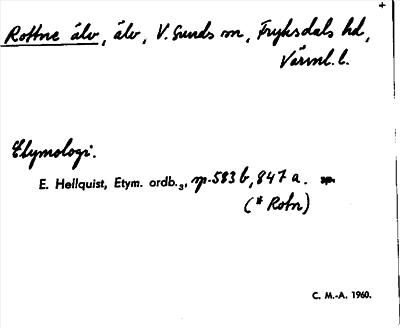 +
Rottne älv, älv, V. Sunds sn, Fryksdals hd,
Värml. l.
Etymologi.
E. Hellquist, Etym. ordb.₃, sp. 583 b, 847 a.
(* Rotn)
C. M.-A. 1960.